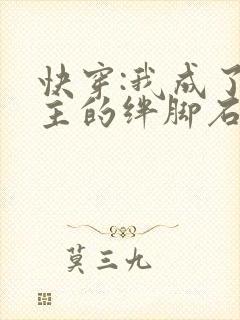 快穿:我成了
主的绊脚石
莫三九